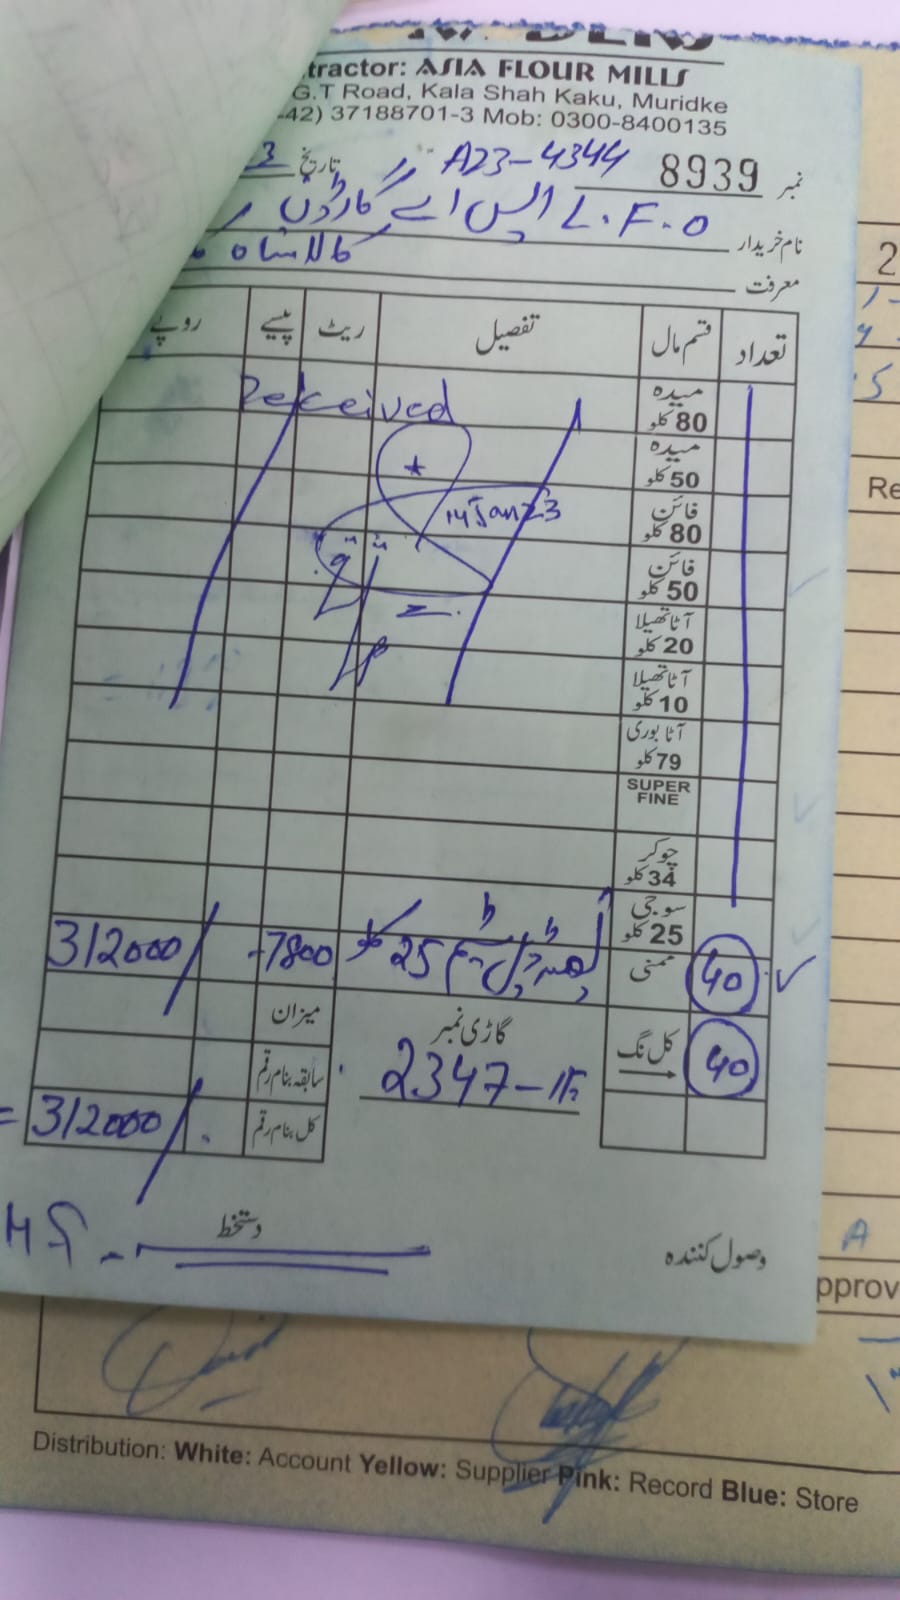 tractor: ASIA FLOUR MILLS
G.T Road, Kala Shah Kaku, Muridke
42) 37188701-3 Mob: 0300-8400135
نمبر 8939 A23-4344 تاریخ 3
نام خریدار L.F.O ایس اے گارڈن
معرفت کالا شاہ
تعداد قسم مال تفصیل ریٹ پیسے روپے
میدہ 80 کلو
Received
میدہ 50 کلو
فائن 80 کلو
14 Jan 23
فائن 50 کلو
آٹا تھیلا 20 کلو
آٹا تھیلا 10 کلو
آٹا بوری 79 کلو
SUPER FINE
چوکر 34 کلو
سوجی 25 کلو
40 ممنی 25 کلو 7800 312000/
40 کل نگ گاڑی نمبر میزان
2347 سابقہ بنام رقم
کل بنام رقم = 312000/
دستخط
وصول کنندہ
2
Re
A
pprov
Distribution: White: Account Yellow: Supplier Pink: Record Blue: Store